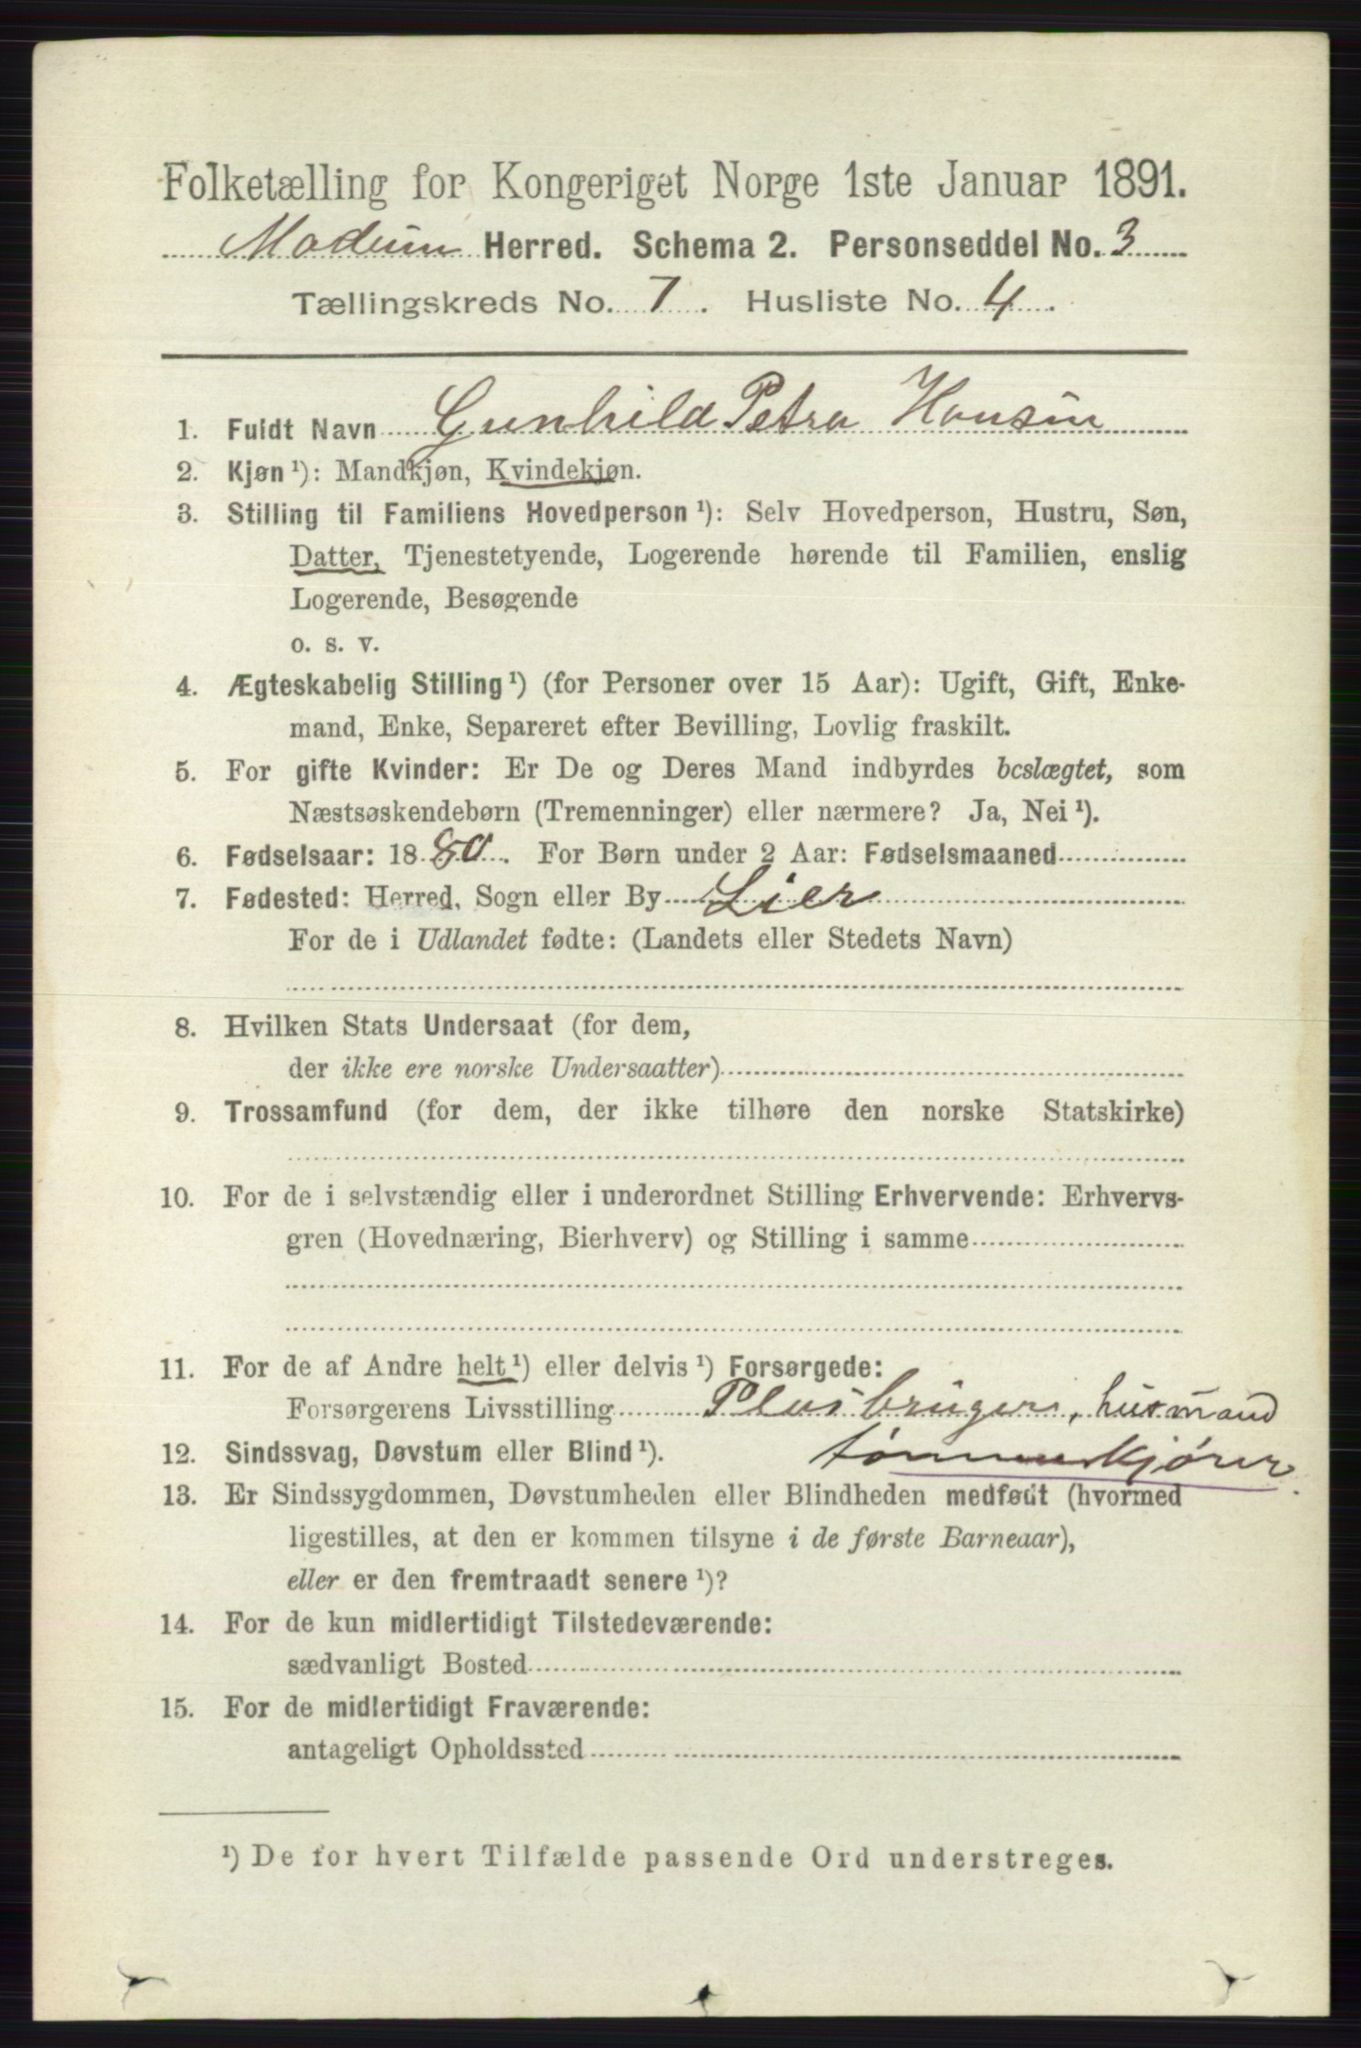 Folketælling for Kongeriget Norge 1ste Januar 1891.
Modum Herred. Schema 2. Personseddel No. 3
Tællingskreds No. 7. Husliste No. 4.
1. Fuldt Navn Gunhild Petra Hansen
2. Kjøn ¹): Mandkjøn, Kvindekjøn.
3. Stilling til Familiens Hovedperson ¹): Selv Hovedperson, Hustru, Søn,
Datter, Tjenestetyende, Logerende hørende til Familien, enslig
Logerende, Besøgende
o. s. v.
4. Ægteskabelig Stilling ¹) (for Personer over 15 Aar): Ugift, Gift, Enke-
mand, Enke, Separeret efter Bevilling, Lovlig fraskilt.
5. For gifte Kvinder: Er De og Deres Mand indbyrdes beslægtet, som
Næstsøskendebørn (Tremenninger) eller nærmere? Ja, Nei ¹).
6. Fødselsaar: 1880. For Børn under 2 Aar: Fødselsmaaned
7. Fødested: Herred, Sogn eller By Lier
For de i Udlandet fødte: (Landets eller Stedets Navn)
8. Hvilken Stats Undersaat (for dem,
der ikke ere norske Undersaatter)
9. Trossamfund (for dem, der ikke tilhøre den norske Statskirke)
10. For de i selvstændig eller i underordnet Stilling Erhvervende: Erhvervs-
gren (Hovednæring, Bierhverv) og Stilling i samme
11. For de af Andre helt ¹) eller delvis ¹) Forsørgede:
Forsørgerens Livsstilling Pladsbruger, husmand
tømmerkjører.
12. Sindssvag, Døvstum eller Blind ¹).
13. Er Sindssygdommen, Døvstumheden eller Blindheden medfødt (hvormed
ligestilles, at den er kommen tilsyne i de første Barneaar),
eller er den fremtraadt senere ¹)?
14. For de kun midlertidigt Tilstedeværende:
sædvanligt Bosted
15. For de midlertidigt Fraværende:
antageligt Opholdssted
¹) De for hvert Tilfælde passende Ord understreges.